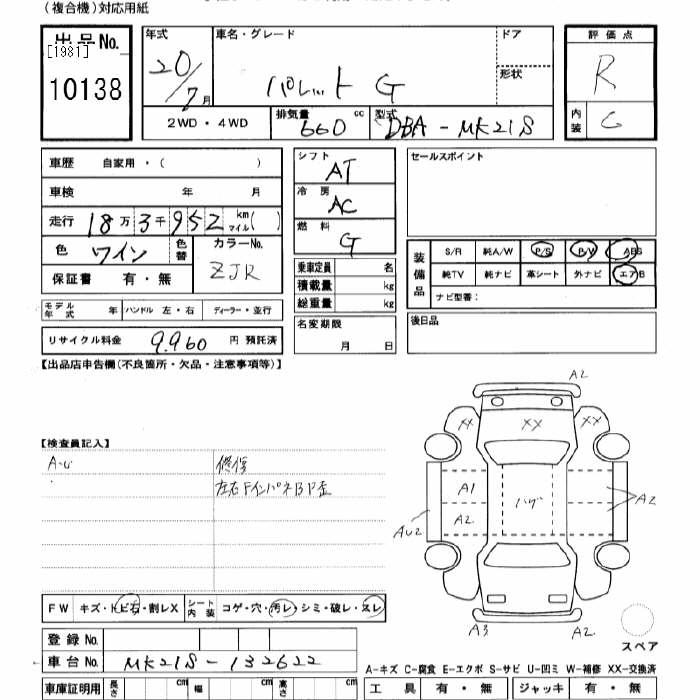 (複合機)対応用紙
出品No.
[1981]
10138
年式
20/7月
車名・グレード
パレット G
ドア
形状
2WD・4WD
排気量 660 cc
型式 DBA-MK21S
評価点
R
内装 C
車歴 自家用・( )
車検 年 月
走行 18万3千952 km マイル( )
色 ワイン 色替
カラーNo. ZJR
保証書 有・無
モデル年式 年 ハンドル 左・右 ディーラー・並行
リサイクル料金 9,960 円 預託済
シフト AT
冷房 AC
燃料 G
乗車定員 名
積載量 kg
総重量 kg
名変期限
月 日
セールスポイント
装備品
S/R 純A/W P/S P/W ABS
純TV 純ナビ 革シート 外ナビ エアB
ナビ型番:
後日品
【出品店申告欄(不良箇所・欠品・注意事項等)】
【検査員記入】
A・U
修復
左右FインパネBP歪
A2
XX XX XX
A1
A2
ハゲ
A2
AU2
A3 A2
スペア
FW キズ・トビ石・割レX
シート内装 コゲ・穴・汚レ・シミ・破レ・スレ
登録No.
車台No. MK21S-132622
車庫証明用 長さ cm 幅 cm 高さ cm
A-キズ C-腐食 E-エクボ S-サビ U-凹ミ W-補修 XX-交換済
工具 有・無 ジャッキ 有・無